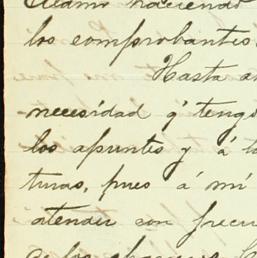 haciendo
los comprobantes
Hasta
necesidad q' teng
los apuntes y á l
turas, pues á mí
atender con frecu